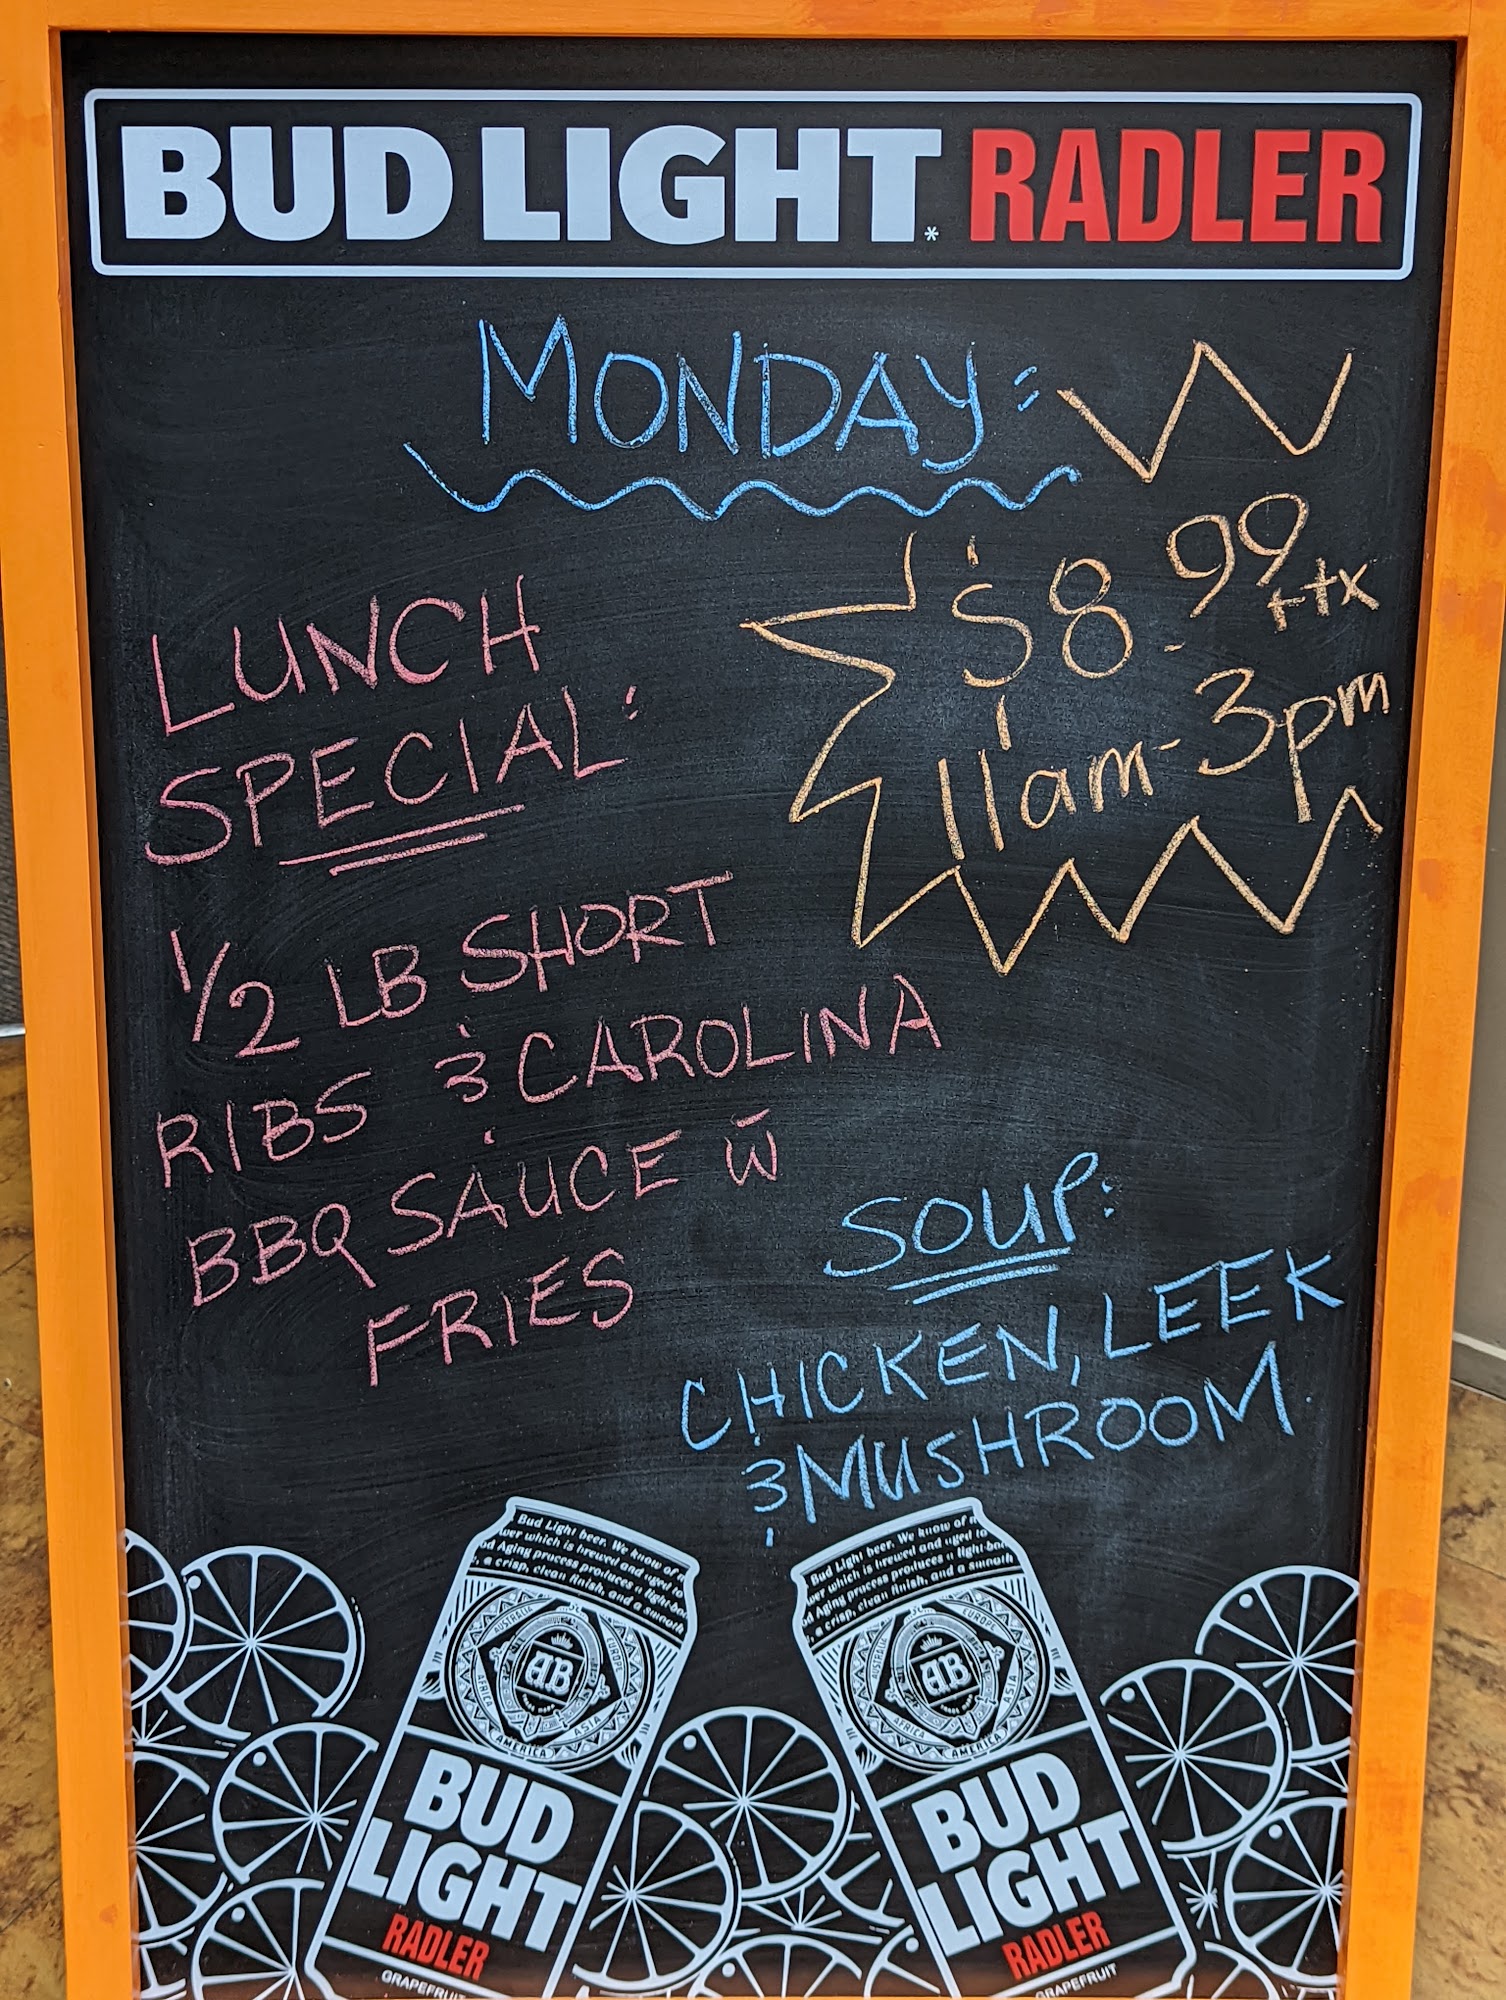 BUD LIGHT* RADLER
MONDAY:
$8.99
+tx
11am-3pm
LUNCH
SPECIAL:
1/2 LB SHORT
RIBS & CAROLINA
BBQ SAUCE w̄
FRIES
SOUP:
CHICKEN, LEEK
& MUSHROOM
Bud Light beer. We know of
wer which is brewed and aged to
d Aging process produces a light-bod
, a crisp, clean finish, and a smooth
AUSTRALIA
EUROPE
AFRICA
ASIA
AMERICA
AB
BUD
LIGHT
RADLER
GRAPEFRUIT
Bud Light beer. We know of
wer which is brewed and aged to
d Aging process produces a light-bod
, a crisp, clean finish, and a smooth
AUSTRALIA
EUROPE
AFRICA
ASIA
AMERICA
AB
BUD
LIGHT
RADLER
GRAPEFRUIT